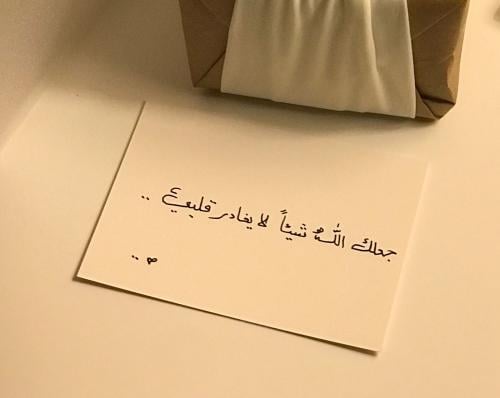 جعلك اللّٰهُ شيئاً لا يغادر قلبي ..